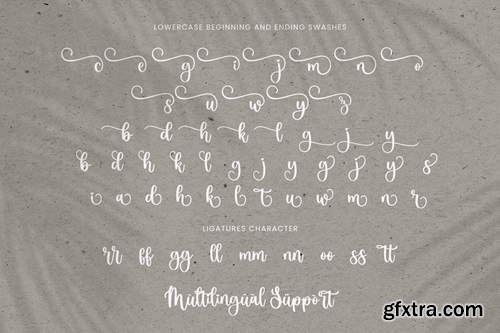 LOWERCASE BEGINNING AND ENDING SWASHES
c e g i j m n o
s u w y z
b d h k l g j y
b d h k l g j y g j y s
i a d h k l t u w m n r
LIGATURES CHARACTER
rr ff gg ll mm nn oo ss tt
Multilingual Support
gfxtra.com